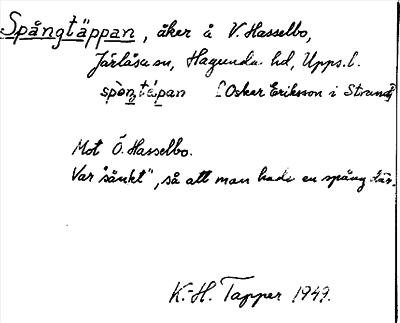 Spångtäppan, åker å V. Hasselbo,
Järlåsa sn, Hagunda hd, Upps.l.
spòŋtépan [Oskar Eriksson i Strand]
Mot Ö. Hasselbo.
Var "sänkt", så att man hade en spång där.
K.-H. Tapper 1949.